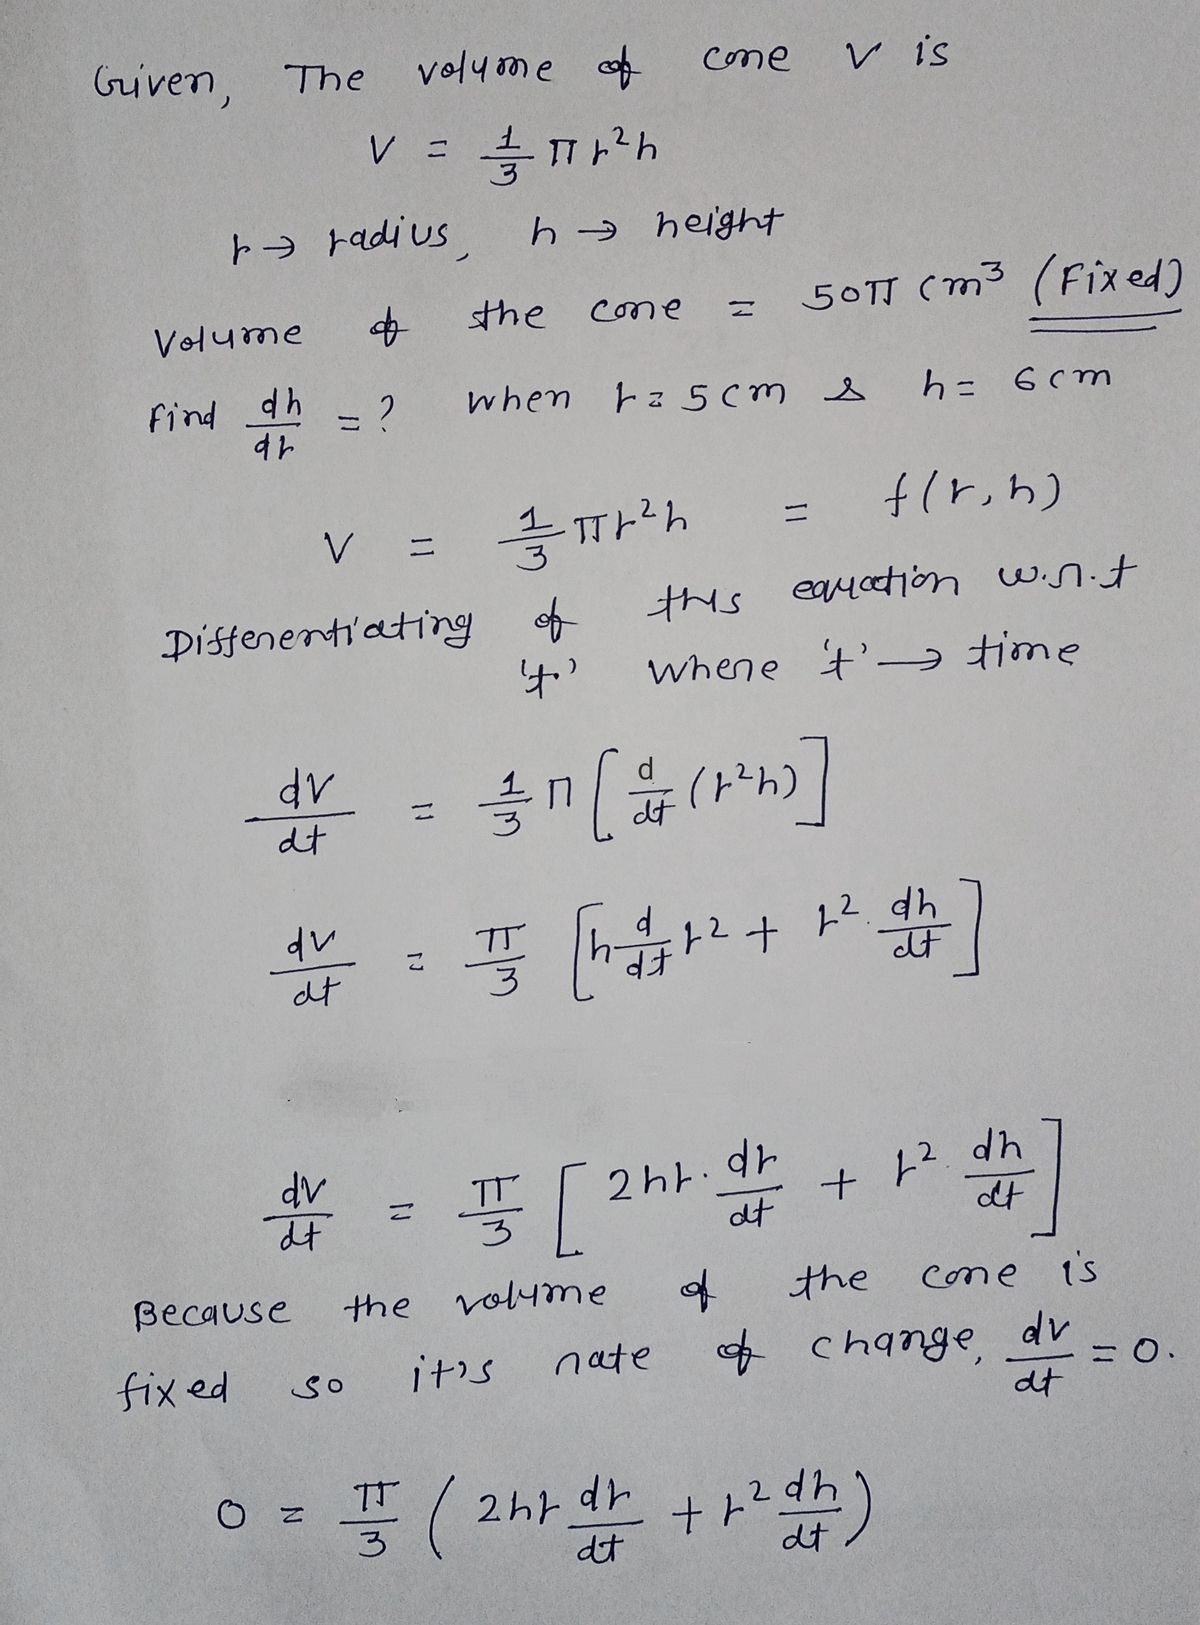 Given, The volume of cone V is
V = 1/3 π r²h
r → radius, h → height
Volume of the cone = 50π cm³ (Fixed)
Find dh/dr = ? when r = 5cm & h = 6cm
V = 1/3 πr²h = f(r, h)
Differentiating of this equation w.r.t
't' where 't' → time
dV/dt = 1/3 π [d/dt (r²h)]
dV/dt = π/3 [h d/dt r² + r². dh/dt]
dV/dt = π/3 [2hr. dr/dt + r². dh/dt]
Because the volume of the cone is
fixed so it's rate of change, dV/dt = 0.
0 = π/3 (2hr dr/dt + r² dh/dt)